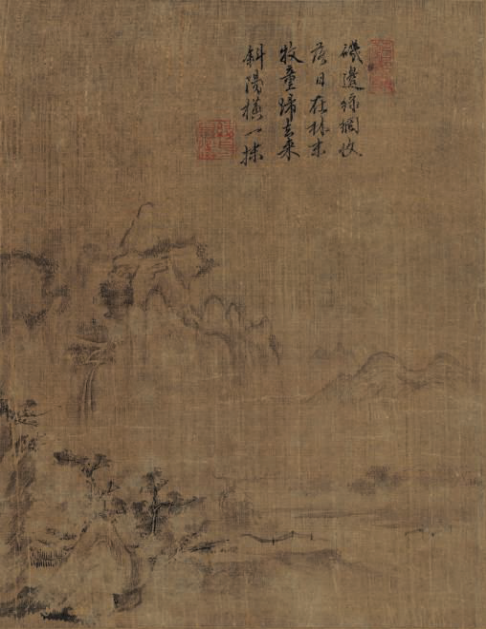 磯邊網收
落日在林末
牧童歸去來
斜陽橫一抹